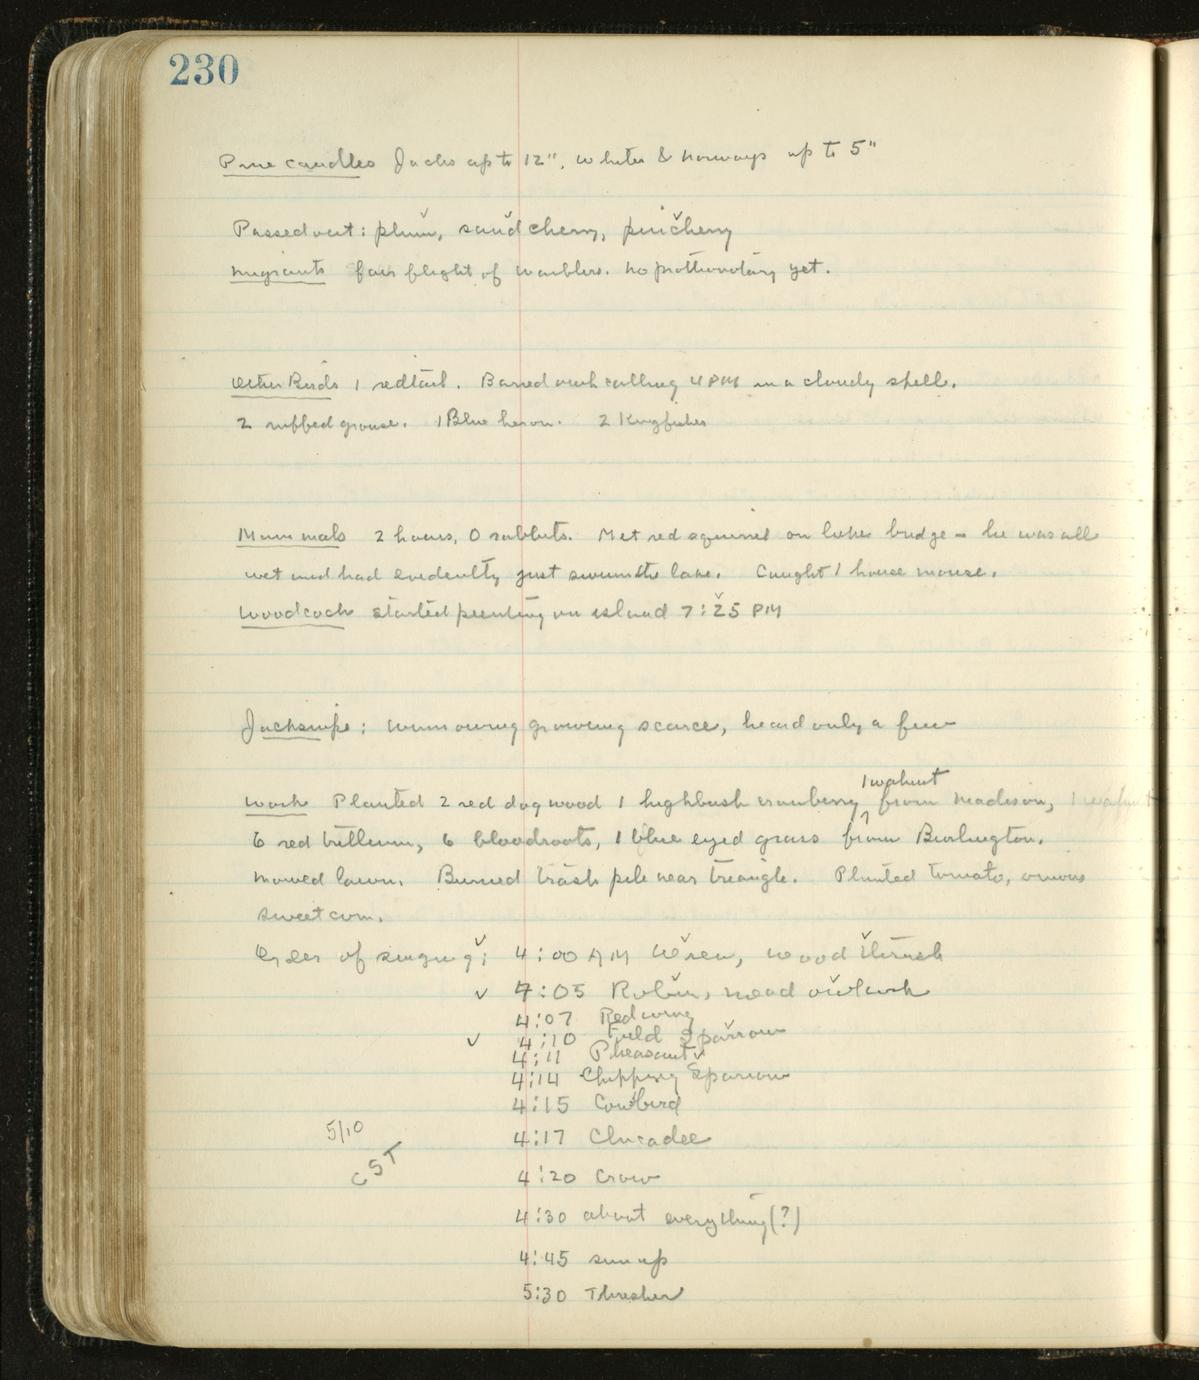 230
Pine candles Jacks up to 12", whites & norways up to 5"
Passed out: plum, sand cherry, pincherry
Migrants fair flight of warblers. No prothonotary yet.
Other Birds 1 redtail. Barred owl calling 4 PM in a cloudy spell.
2 ruffed grouse. 1 Blue heron. 2 Kingfisher
Mammals 2 hours, 0 rabbits. Met red squirrel on lake bridge - he was all
wet and had evidently just swum the lake. Caught 1 house mouse.
Woodcock started peenting on island 7:25 PM
Jacksnipe: winnowing growing scarce, heard only a few
1 walnut
Work Planted 2 red dogwood 1 highbush cranberry ^ from Madison, 1 walnut
6 red trillium, 6 bloodroots, 1 blue eyed grass from Burlington.
Mowed lawn. Burned trash pile near triangle. Planted tomato, onions
sweet corn.
Order of singing: 4:00 AM Wren, Wood Thrush
4:05 Robin, meadowlark
4:07 Redwing
4:10 Field Sparrow
4:11 Pheasant
4:14 Chipping Sparrow
4:15 Cowbird
5/10
4:17 Chicadee
CST
4:20 Crow
4:30 about everything (?)
4:45 sun up
5:30 Thrasher